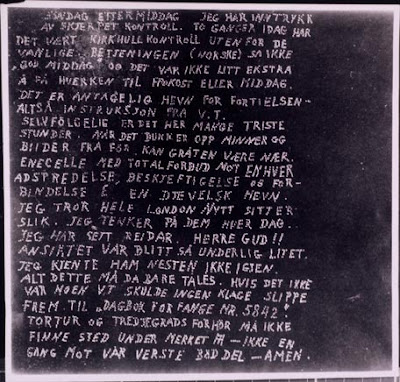 SØNDAG ETTERMIDDAG JEG HAR INNTRYKK
AV SKJERPET KONTROLL. TO GANGER IDAG HAR
DET VÆRT KIKKHULLKONTROLL UTEN FOR DE
VANLIGE. BETJENINGEN (NORSKE) SA IKKE
"GOD MIDDAG" OG DET VAR IKKE LITT EKSTRA
Å FÅ HVERKEN TIL FROKOST ELLER MIDDAG.
DET ER ANTAGELIG HEVN FOR FORTIELSEN-
ALTSÅ INSTRUKSJON FRA V.T.
SELVFØLGELIG ER DET HER MANGE TRISTE
STUNDER. NÅR DET DUKKER OPP MINNER OG
BILDER FRA FØR, KAN GRÅTEN VÆRE NÆR.
ENECELLE MED TOTALFORBUD MOT ENHVER
ADSPREDELSE, BESKJEFTIGELSE OG FOR-
BINDELSE E EN DJEVELSK HEVN.
JEG TROR HELE LONDON NYTT SITTER
SLIK. JEG TENKER PÅ DEM HVER DAG.
JEG HAR SETT REIDAR. HERRE GUD!!
ANSIKTET VAR BLITT SÅ UNDERLIG LITET.
JEG KJENTE HAM NESTEN IKKE IGJEN.
ALT DETTE MÅ DA BARE TALES. HVIS DET IKKE
VAR NOEN V.T SKULDE INGEN KLAGE SLIPPE
FREM TIL "DAGBOK FOR FANGE NR. 5842."
TORTUR OG TREDJEGRADS FORHØR MÅ IKKE
FINNE STED UNDER MERKET — IKKE EN
GANG MOT VÅR VERSTE BØDDEL — AMEN.